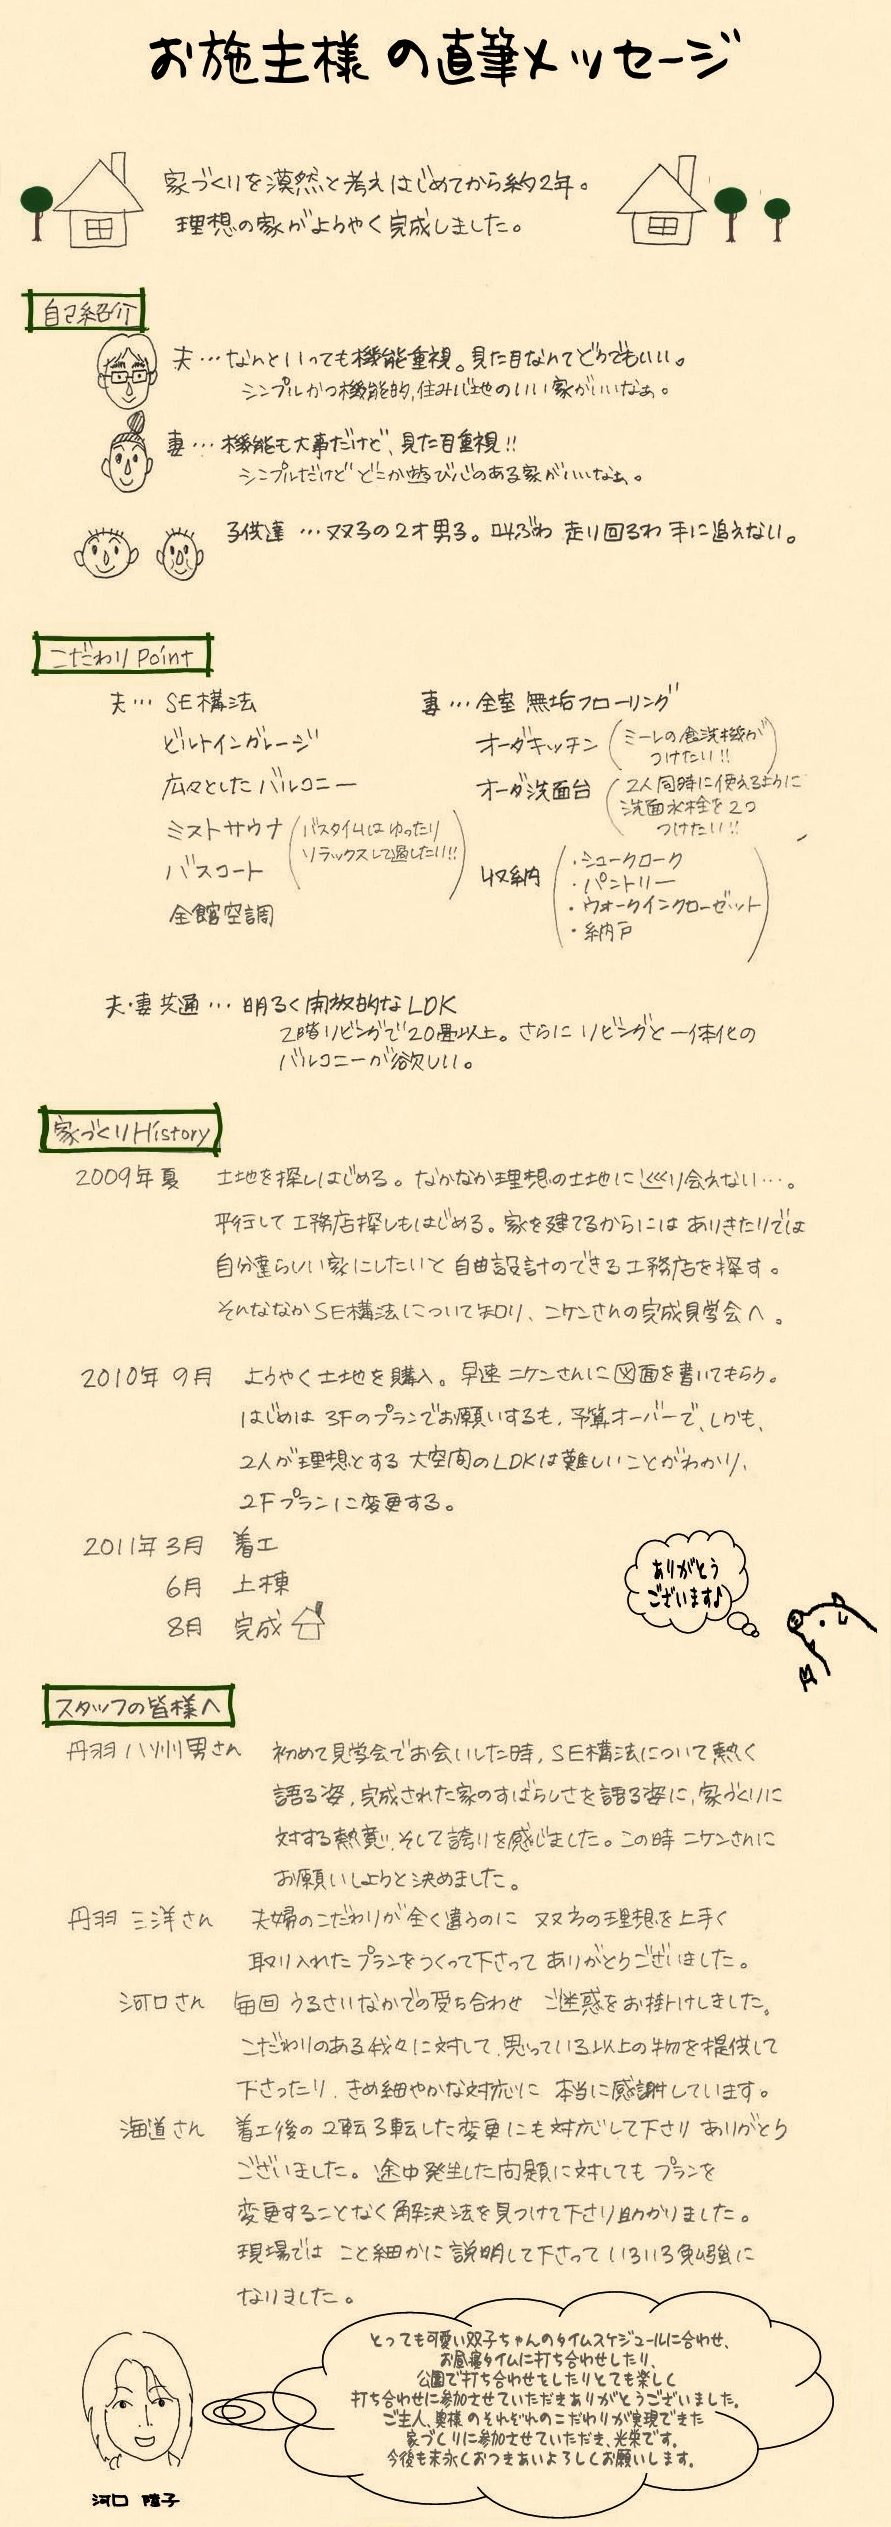 お施主様の直筆メッセージ
家づくりを漠然と考えはじめてから約2年。
理想の家がようやく完成しました。
自己紹介
夫…なんといっても機能重視。見た目なんてどうでもいい。
シンプルかつ機能的、住み心地のいい家がいいなぁ。
妻…機能も大事だけど、見た目重視!!
シンプルだけどどこか遊び心のある家がいいなぁ。
子供達…双子の2才男子。叫ぶわ 走り回るわ 手に追えない。
こだわりPoint
夫…SE構法
ビルトインガレージ
広々としたバルコニー
ミストサウナ
バスコート
(バスタイムはゆったり
リラックスして過したい!!)
全館空調
妻…全室無垢フローリング
オーダキッチン(ミーレの食洗機が
つけたい!!)
オーダ洗面台(2人同時に使えるように
洗面水栓を2つ
つけたい!!)
収納
・シュークローク
・パントリー
・ウォークインクローゼット
・納戸
夫・妻共通…明るく開放的なLDK
2階リビングで20畳以上。さらにリビングと一体化の
バルコニーが欲しい。
家づくりHistory
2009年夏 土地を探しはじめる。なかなか理想の土地に巡り会えない…。
平行して工務店探しもはじめる。家を建てるからには ありきたりでは
自分達らしい家にしたいと 自由設計のできる工務店を探す。
そんななかSE構法について知り、ニケンさんの完成見学会へ。
2010年 9月 ようやく土地を購入。早速ニケンさんに図面を書いてもらう。
はじめは 3Fのプランでお願いするも、予算オーバーで、しかも、
2人が理想とする 大空間のLDKは難しいことがわかり、
2Fプランに変更する。
2011年3月 着工
6月 上棟
8月 完成
ありがとう
ございます♪
スタッフの皆様へ
丹羽八州男さん 初めて見学会でお会いした時、SE構法について熱く
語る姿、完成された家のすばらしさを語る姿に、家づくりに
対する熱意、そして誇りを感じました。この時ニケンさんに
お願いしようと決めました。
丹羽 三洋さん 夫婦のこだわりが全く違うのに 双方の理想を上手く
取り入れたプランをつくって下さって ありがとうございました。
河口さん 毎回うるさいなかでの受ち合わせ ご迷惑をお掛けしました。
こだわりのある我々に対して、思っている以上の物を提供して
下さったり、きめ細やかな対応に 本当に感謝しています。
海道さん 着工後の2転3転した変更にも対応して下さり ありがとう
ございました。途中発生した問題に対しても プランを
変更することなく解決法を見つけて下さり助かりました。
現場では こと細かに説明して下さって いろいろ勉強に
なりました。
とっても可愛い双子ちゃんのタイムスケジュールに合わせ、
お昼寝タイムに打ち合わせしたり、
公園で打ち合わせをしたりとても楽しく
打ち合わせに参加させていただきありがとうございました。
ご主人、奥様のそれぞれのこだわりが実現できた
家づくりに参加させていただき、光栄です。
今後も末永くおつきあいよろしくお願いします。
河口 子